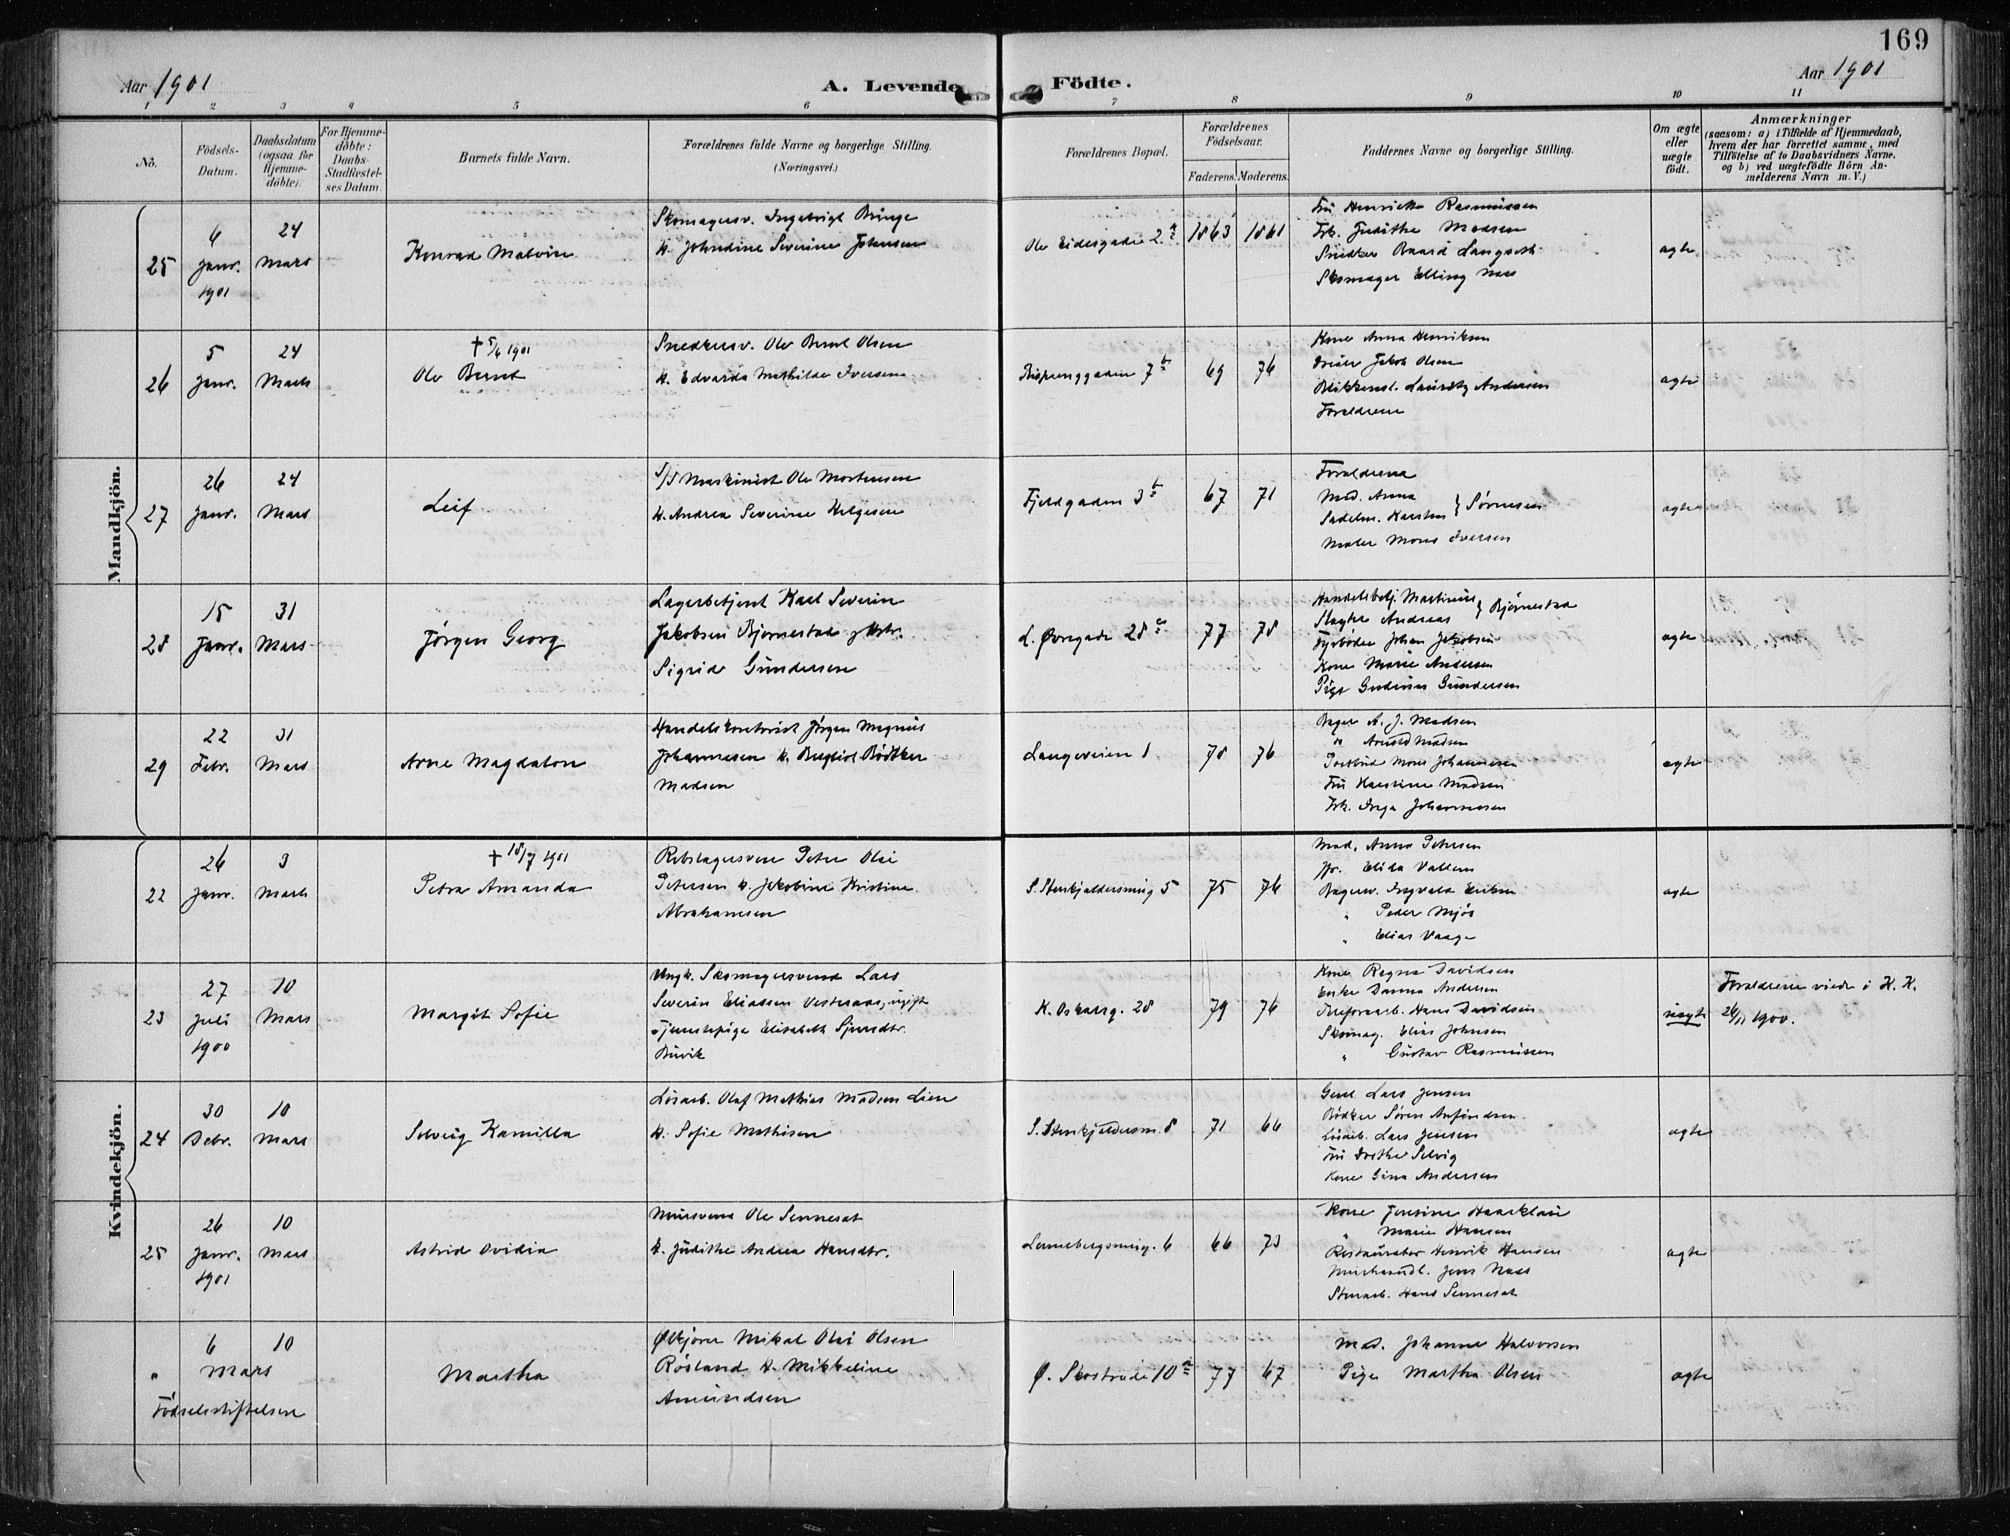 169
Aar 1901
A. Levende Födte.
Aar 1901
1 2 3 4 5 6 7 8 9 10 11
No.
Födsels-Datum.
Daabsdatum (ogsaa for Hjemme-døbte).
For Hjemme-døbte: Daabs-Stadfæstel-ses Datum.
Barnets fulde Navn.
Forældrenes fulde Navne og borgerlige Stilling.
(Næringsvei.)
Forældrenes Bopæl.
Forældrenes Födselsaar.
Faderens. Moderens.
Faddernes Navne og borgerlige Stilling.
Om ægte eller uægte født.
Anmærkninger
(saasom: a) i Tilfælde af Hjemmedaab,
hvem der har forrettet samme, med
Tilföielse af to Daabsvidners Navne.
og b) ved uægtefödte Börn An-
melderens Navn m. V.)
Mandkjön.
25
6 Janr. 1901
24 Mars
Konrad Malvin
Skomagersv. Ingebrigt Bringe
H. Johndine Severine Johnsen
Ole Eidesgade 2 a
1863 1861
Fru Henriette Rasmussen
Frk. Judithe Madsen
Snedker Baard Langseth
Skomager Elling Næss
ægte
26
5 Janr.
24 Mars
† 5/6 1901
Ole Bernt
Snedkersv. Ole Bernt Olsen
H. Edvarda Mathilde Iversen
7 b
69 76
Kone Anna Henriksen
Jakob Olsen
Blikkensl. Lauritz Andersen
Forældrene
ægte
27
26 Janr.
24 Mars
Leif
S/S Maskinist Ole Mortensen
H. Andrea Severine Helgesen
Fjeldgaden 3 b
67 71
Forældrene
Mad. Anna
Sadelm. Karsten } Sørnesen
Maler Mons Iversen
ægte
28
15 Janr.
31 Mars
Jørgen Georg
Lagerbetjent Karl Severin
Jakobsen Bjørnestad
Sigrid Gundersen
L. Øvregade 28 a
77 78
Handelsbetj. Martinius } Bjørnestad
Slagter Andreas
Fyrbøder Johan Jakobsen
Kone Marie Andersen
Pige Gundersen
ægte
29
22 Febr.
31 Mars
Arne Magdalon
Handelskontorist Jørgen Magnus
Johannesen H. Bergliot Bödtker
Madsen
Langeveien 1
78 76
Bager A. J. Madsen
" Arnold Madsen
Postbud Mons Johannesen
Fru Karstine Madsen
Frk. Inga Johannesen
ægte
Kvindekjön.
22
26 Janr.
3 Marts
† 18/7 1901
Petra Amanda
Rebslagersven Peter Olai
Petersen H. Jakobine Kristine
Abrahamsen
S. Stenkjeldersmug 5
75 76
Mad. Anna Petersen
Jfr. Elida Vallem
Bagersv. Ingvald Eriksen
" Peder Mjös
" Elias Vaage
ægte
23
27 Juli 1900
10 Mars
Margit Sofie
Ungk. Skomagersvend Lars
Severin Eliassen Vesteraas, ugift
Tjenestepige Elisabeth Sjursdtr.
Buvik
K. Oskarsg. 28
79 76
Kone Ragna Davidsen
Enke Danna Andersen
Hans Davidsen
Skomag. Elias Johnsen
" Gustav Rasmussen
uægte
Forældrene viede i K. K.
26/11 1900.
24
30 Debr.
10 Mars
Solveig Kamilla
Løsarb. Olaf Mathias Madsen Lien
H. Sofie Mathisen
S. Stenkjeldersm. 8
71 66
Lars Jensen
Bödker Sören Anfindsen
Løsarb. Lars Jensen
Fru Dorthe Selvig
Kone Gina Andersen
ægte
25
26 Janr. 1901
10 Mars
Astrid Ovidia
Mursvend Ole Sennesæt
H. Judithe Andrea Hansdtr.
Lennebergsmug. 6
66 73
Kone Jensine Haarklau
" Marie Hansen
Restauratør Henrik Hansen
Jens Næss
Stenarb. Hans Sennesæt
ægte
"
6 Mars
10
Fødselsstiftelsen
Martha
Ølkjører Mikal Olai Olsen
Røsland H. Mikkeline
Amundsen
Ø. Skostræde 10 a
77 67
Mad. Johanne Halvorsen
Pige Martha Olsen
ægte